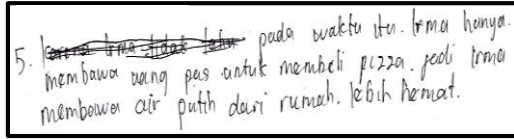 5. Karena Irma tidak tahu pada waktu itu. Irma hanya.
membawa uang pas untuk membeli pizza. jadi Irma
membawa air putih dari rumah. lebih hemat.